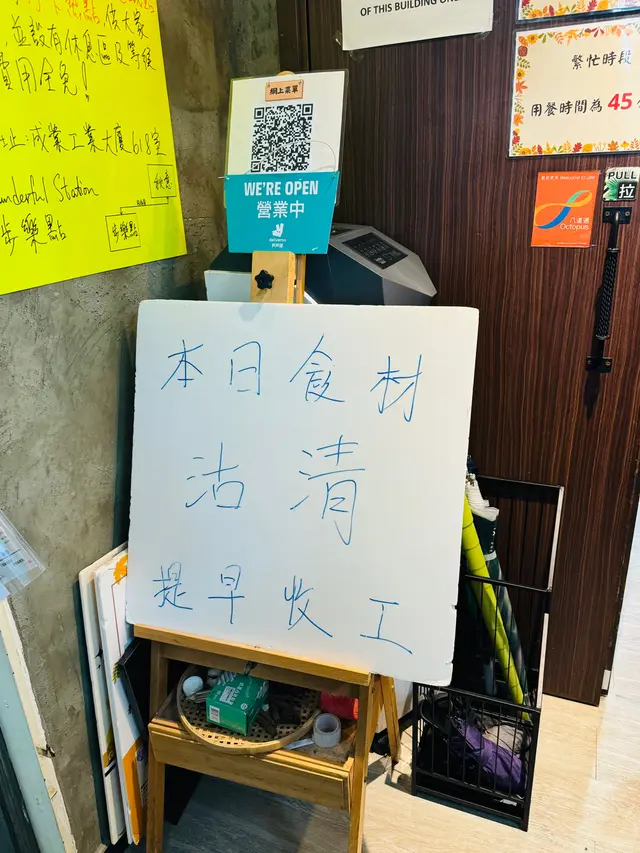 OF THIS BUILDING ON
並設有休息區及等候
費用全免!
址:成業工業大廈618室
underful Station
步樂點
步樂點
網上菜單
WE'RE OPEN
營業中
deliveroo
戶戶送
繁忙時段
用餐時間為45
歡迎使用 Welcome to use
八達通
Octopus
PULL
拉
本日食材
沽清
提早收工